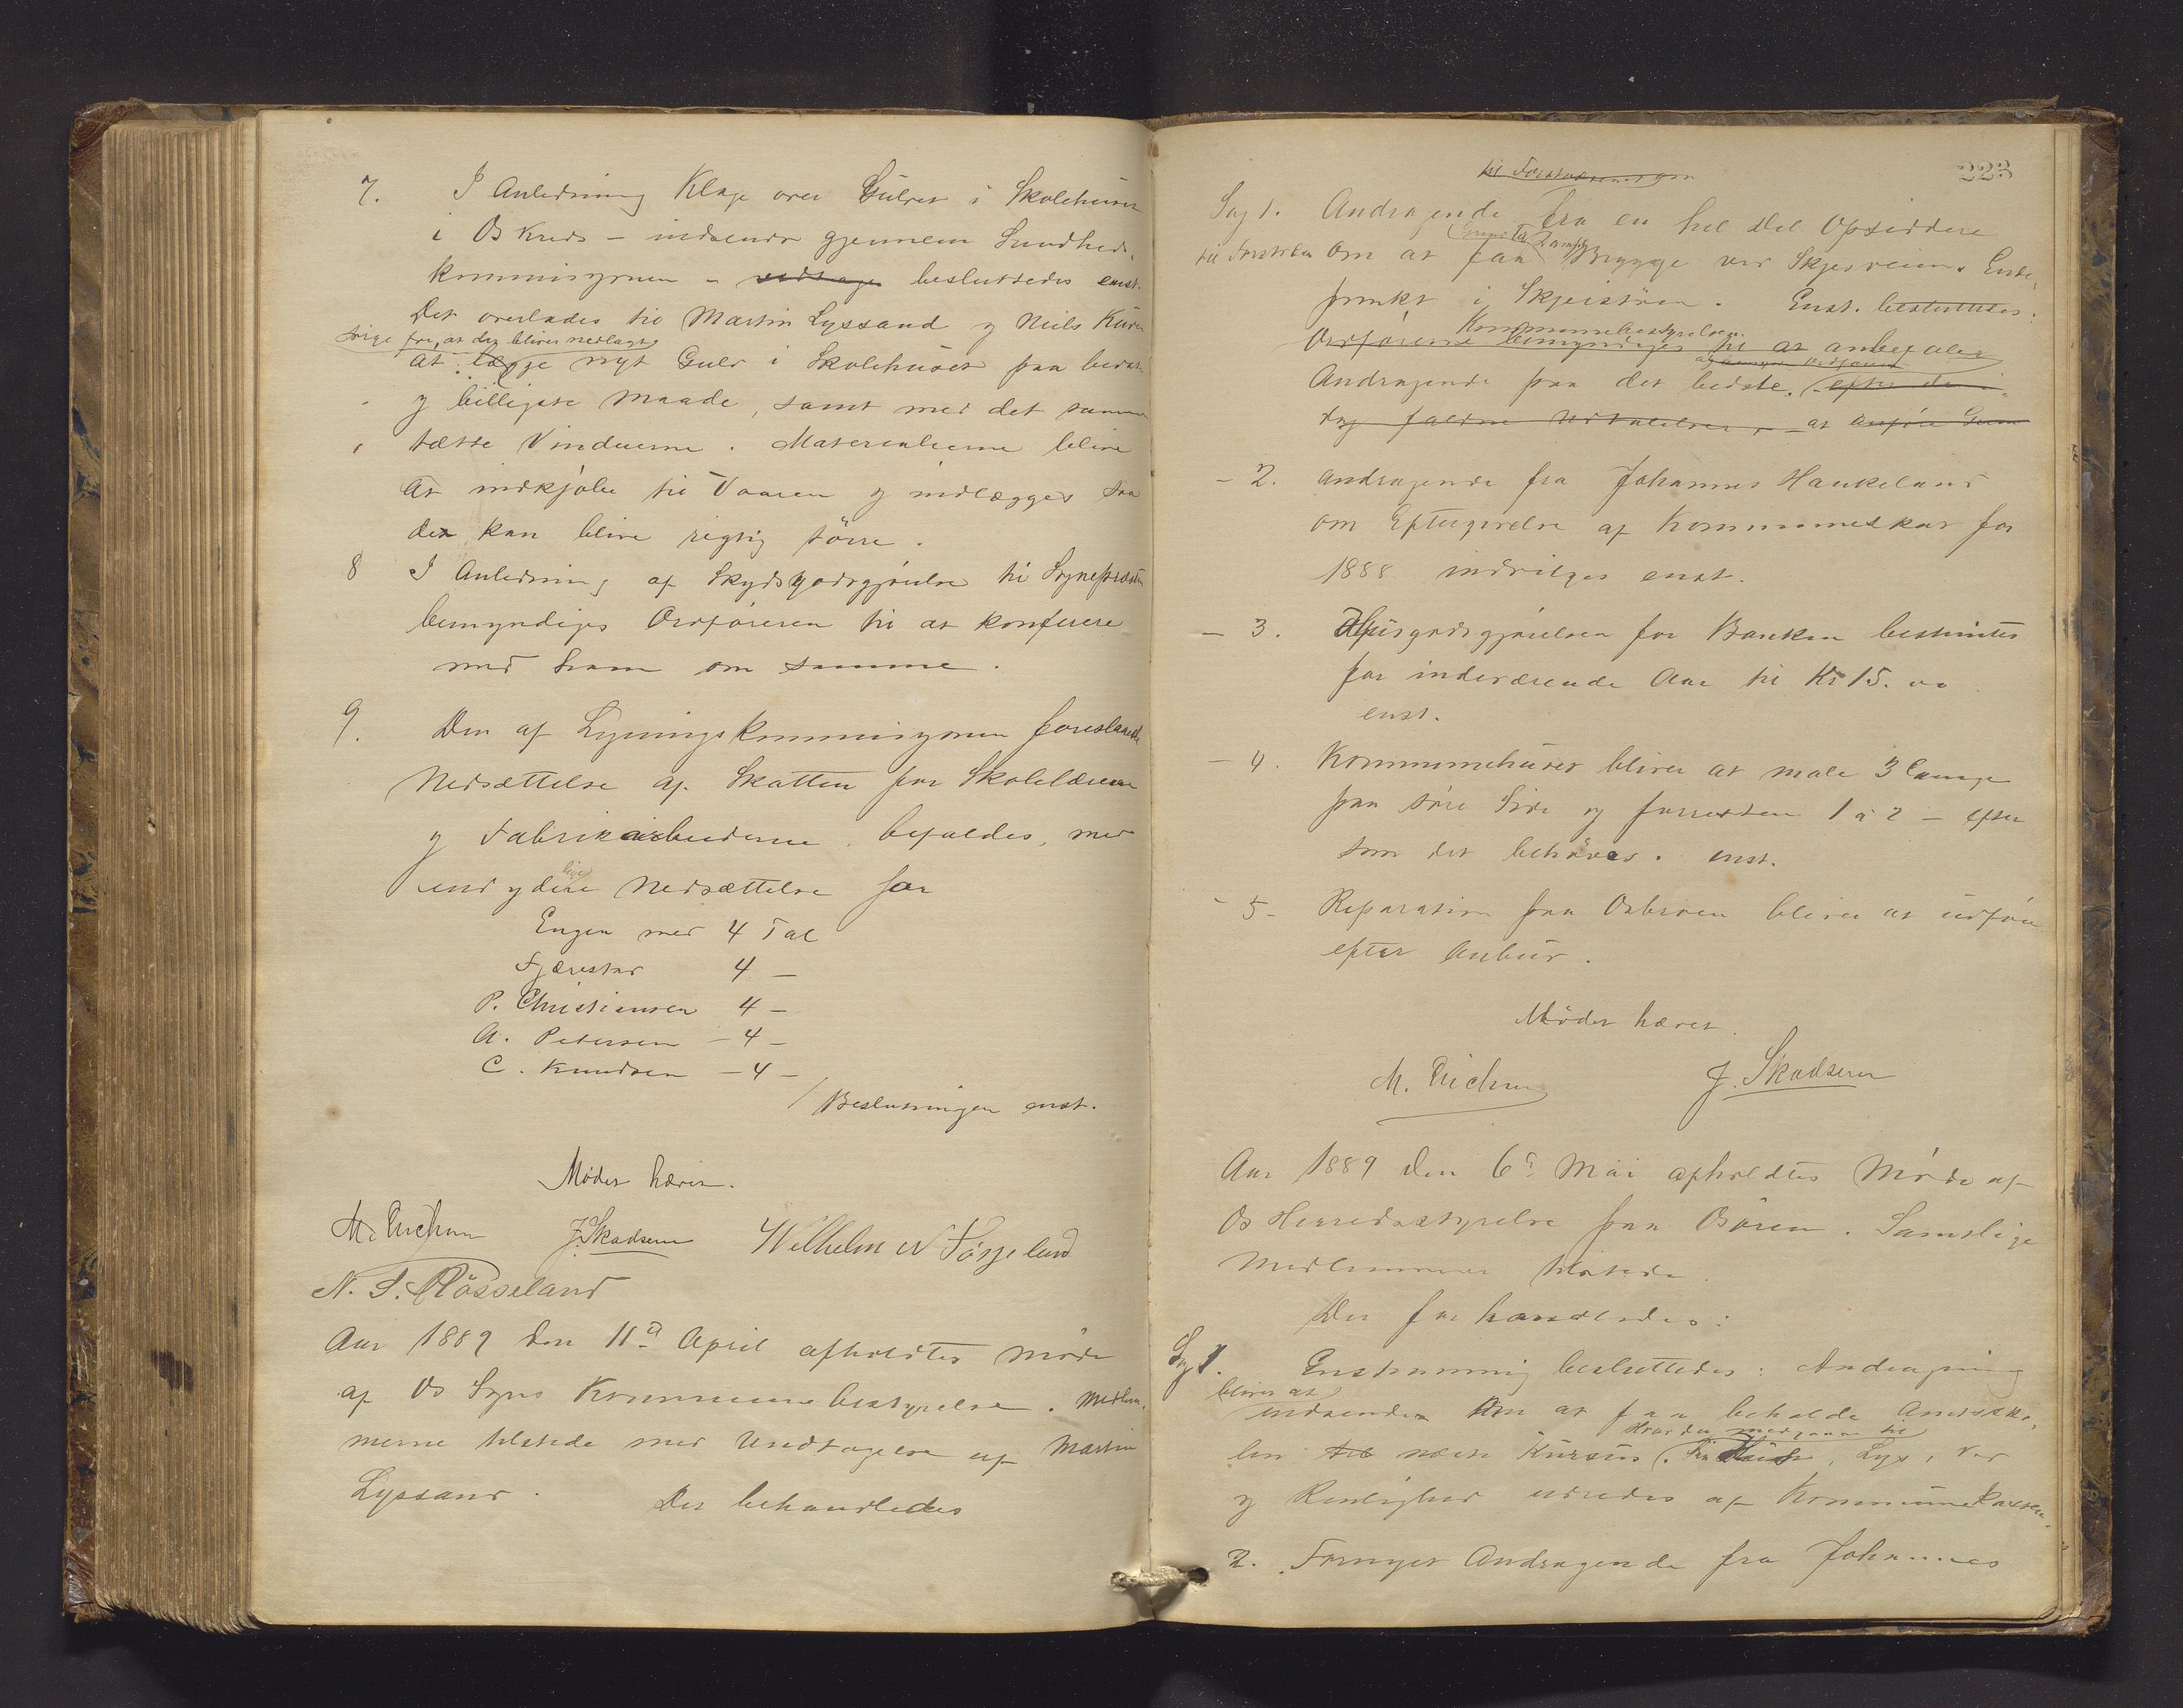 7. I Anledning Klage over Gulvet i Skolehuset
i Os Kreds - indsendt gjennem Sundheds-
kommisyonen - vedtages besluttedes enst.
Det overlades til Martin Lyssand og Niels Kuven
sørge for, at der bliver nedlagt
at lægge nyt Gulv i Skolehuset paa bedste
og billigste Maade, samt med det samme
tætte Vinduerne. Materialierne blive
at indkjøbe til Vaaren og indlægges saa
de kan blive rigtig törre.
8 I Anledning af Skydsgodtgjørelse til Sognepræsten
bemyndiges Ordføreren til at konferere
med ham om samme.
9. Den af Ligningskommisyonen foreslaaede
Nedsættelse af Skatten for Skolelærerne
og Fabrikarbeiderne befaldes, med
end ydere Nedsættelse for
lige
Engen med 4 Tal
Fjærestad 4 -
P. Christiansen 4 -
A. Petersen - 4 -
C. Knudsen - 4 -
Beslutningen enst.
Mødet hævet.
M. Erichsen J. Skadsem Wilhelm N Søfteland
N. S. Røsseland
Aar 1889 den 11te April afholdtes Møde
af Os Sogns Kommunebestyrelse. Medlem-
merne tilstede med Undtagelse af Martin
Lyssand.
Der behandledes
223
til Forstvæsenet om
Sag 1. Andragende fra en hel Del Opsiddere
til Amtet om at faa Brygge ved Skjesveiens Ende-
punkt i Skjeistöen. Enst. besluttes:
Kommunebestyrelsen
Ordføreren bemyndiges til at anbefaler
Andragende paa det bedste. efter de i
dag faldne Udtalelser, at
- 2. Andragende fra Johannes Haukeland
om Eftergivelse af Kommuneskat for
1888 indvilges enst.
- 3. Husgodtgjørelsen for Banken bestemtes
for indeværende Aar til Kr 15. 00
enst.
- 4. Kommunehuset bliver at male 3 Gange
paa søre Side og forresten 1 à 2 - efter
som det behøves. enst.
- 5 - Reparation paa Osbroen bliver at udføre
efter Anbud.
Mødet hævet.
M. Erichsen J. Skadsem
Aar 1889 den 6te Mai afholdtes Møde af
Os Herredsstyrelse paa Osören. Samtlige
Medlemmer tilstede.
Der forhandledes:
Sag 1. Enstemmig besluttedes: Andragning
bliver at
indsende om at faa beholde Amtssko-
Hvad der medgaar til
len til næste Kursus. Huus, Lys, Ved
og Renlighed udredes af Kommunekassen.
2. Fornyet Andragende fra Johannes